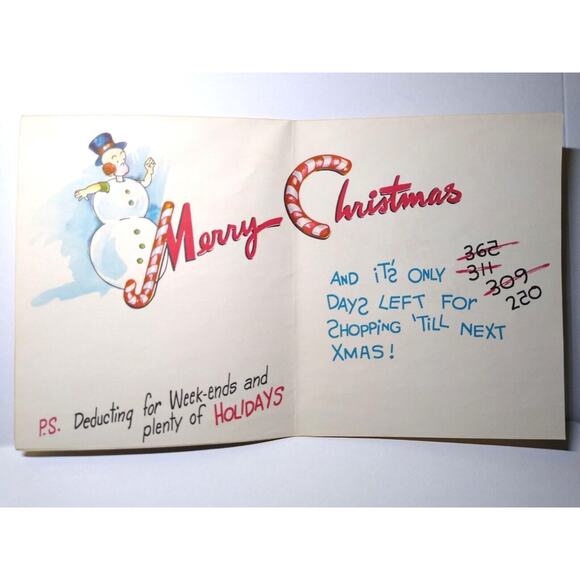 Merry Christmas
AND iT'S ONLY
365
311
309
250
DAYS LEFT FOR
SHOPPING 'TILL NEXT
XMAS!
P.S. Deducting for Week-ends and
plenty of HOLIDAYS